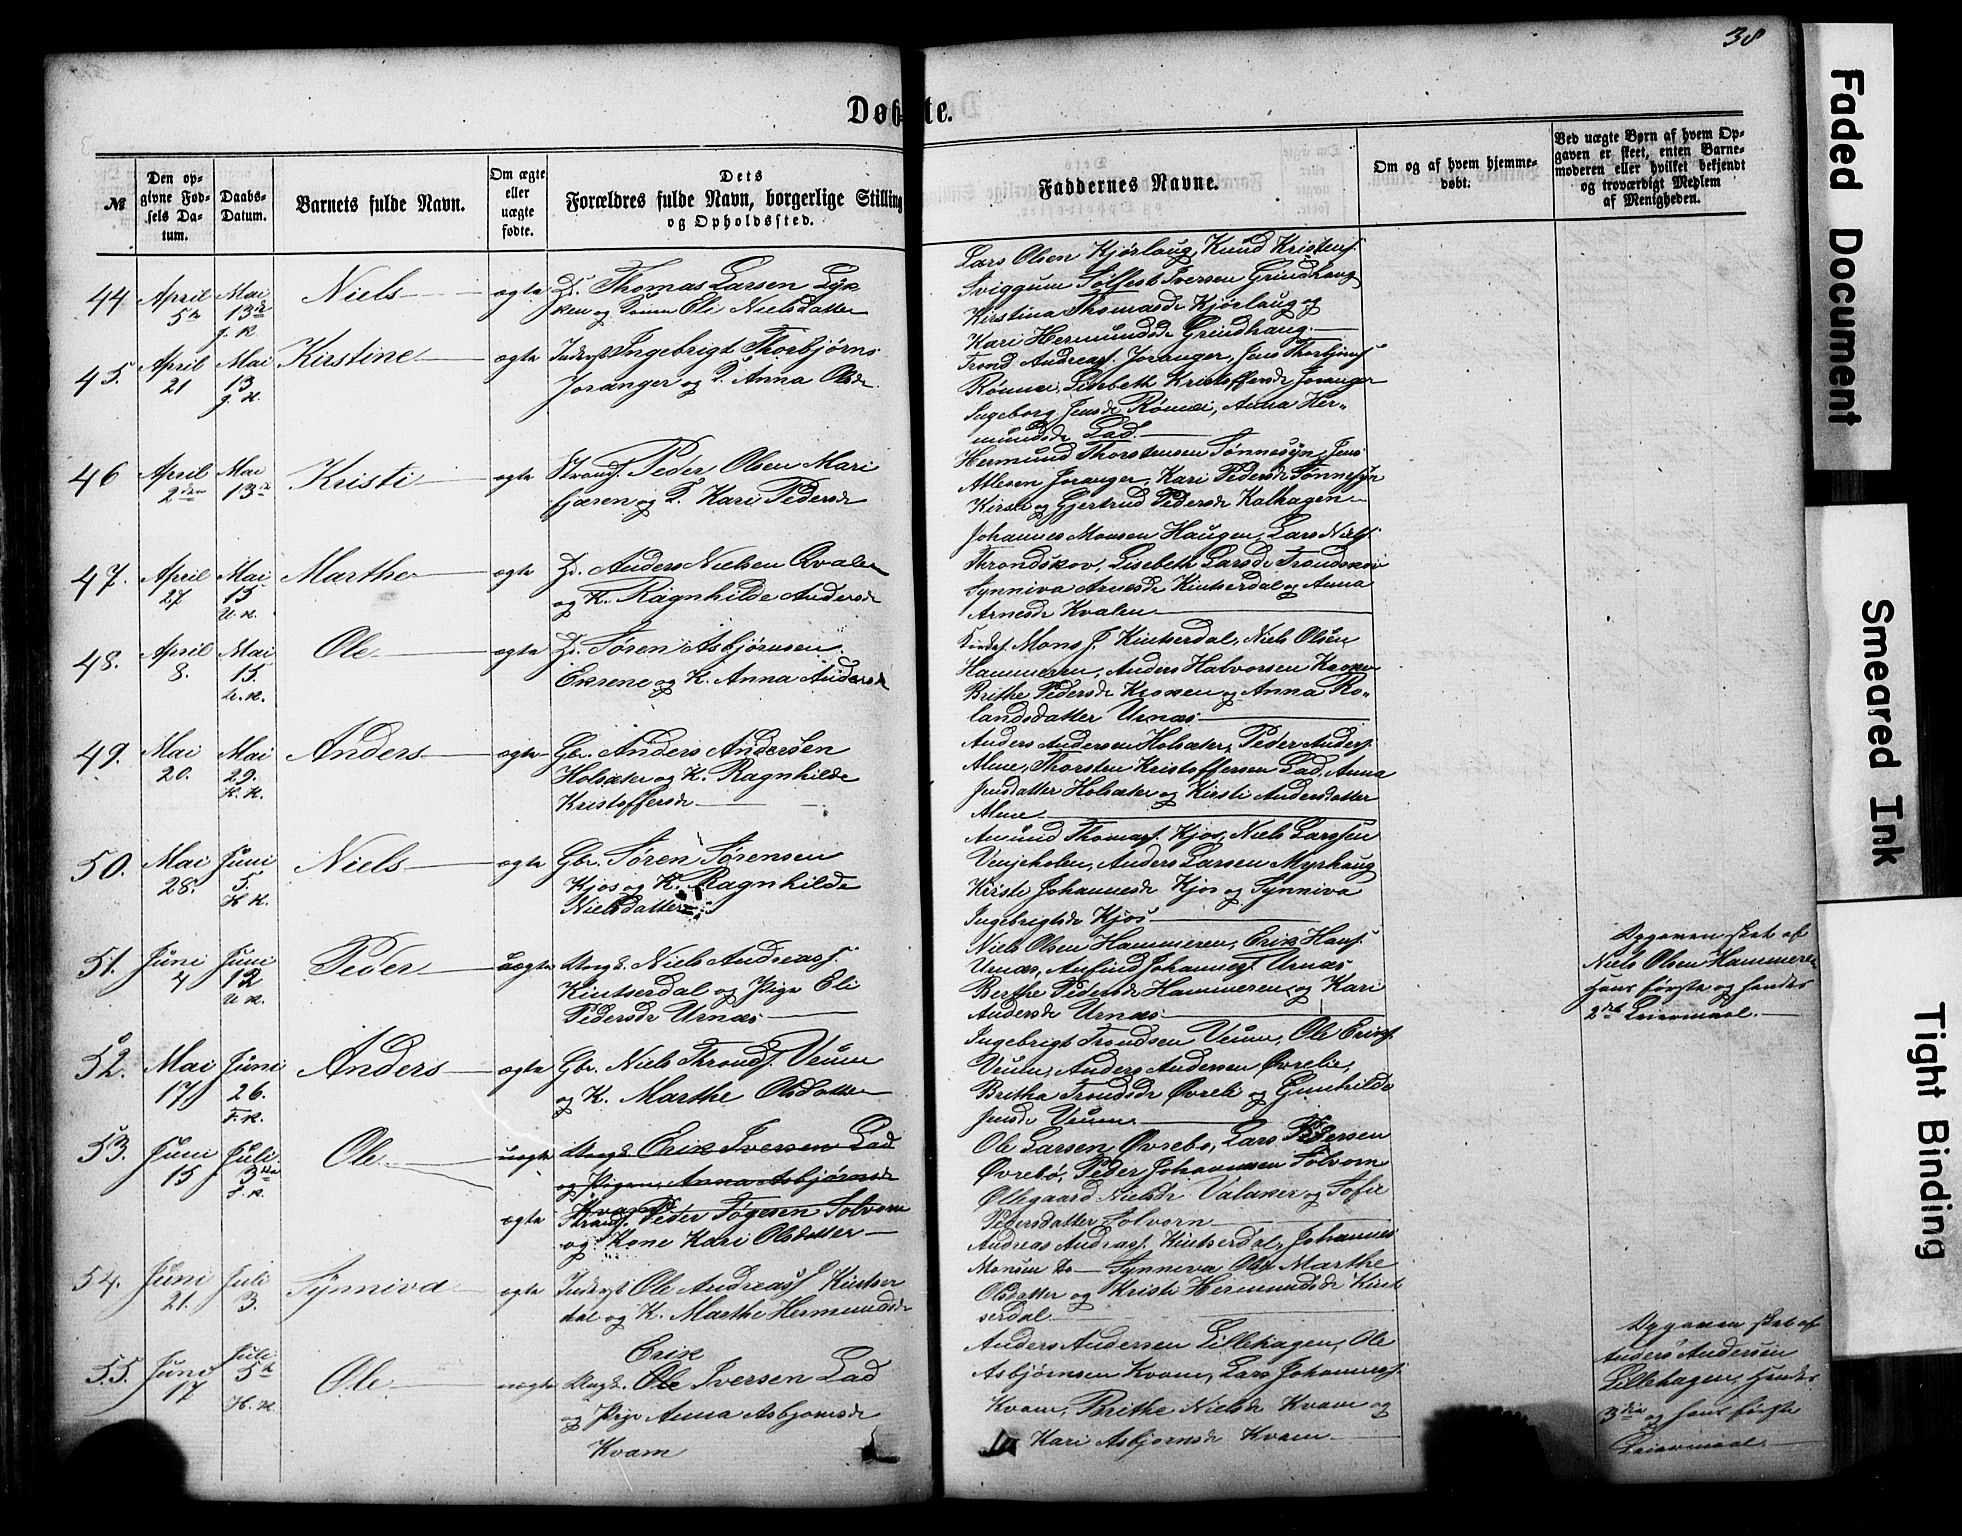 38
Døbte.
№
Den opgivne Fødsels Datum.
Daabs-Datum.
Barnets fulde Navn.
Om ægte eller uægte fødte.
Dets Forældres fulde Navn, borgerlige Stilling og Opholdssted.
Faddernes Navne.
Om og af hvem hjemmedøbt.
Ved uægte Børn af hvem Opgaven er skeet, enten Barnemoderen eller hvilket bekjendt og troværdigt Medlem af Menigheden.
44. April 5te Mai 13de J. K. Niels ægte Thomas Larsen Lyk
ken og Kone Oli Nielsdatter
Lars Olsen Kjørlaug, Knud Kristens.
Sviggum Solfest Iversen Grindhaug
Kirstina Thomasdr Kjørlaug og
Kari Hermundsdr Grindhaug.
45. April 21 Mai 13. J. K. Kirstine ægte Inderst Ingebrigt Thorbjørns.
Joranger og K. Anna Olsdr
Trond Andreass. Joranger, Jens Thorbjørns.
Rønnei, Lisebeth Kristoffersdr Joranger
Ingeborg Jensdr Rønnei, Anna Her-
mundsdr Lad.
46 April 2den Mai 13de Kristi ægte Strands. Peder Olsen Mari
fjæren og K. Kari Pedersdr
Hermund Thorstensen Sønnesyn, Jens
Atlesen Joranger, Kari Pedersdr Sønnesyn
Kirsti og Gjertrud Pedersdr Kalhagen
47. April 27 Mai 15 U. K. Marthe ægte Anders Nielsen Qvalen
og K. Ragnhilde Andersdr
Johannes Monsen Haugen, Lars Niels.
Throndskov, Lisebeth Larsdr Trondskov
Synniva Arnesdr Kintserdal og Anna
Arnesdr Kvalen
48. April 8. Mai 15. U. K. Ole ægte Søren Asbjørnsen
Eikrene og K. Anna Andersdr
Mons J. Kintserdal, Niels Olsen
Hammeren, Anders Halvorsen Kroken
Brithe Pedersdr Kroken og Anna Ro-
landsdatter Urnæs
49. Mai 20. Mai 29. H. K. Anders ægte Gbr. Anders Andersen
Holsæter og K. Ragnhilde
Kristoffersdr
Anders Andersen Holsæter, Peder Anders.
Alme, Thorsten Kristoffersen Lad, Anna
Jensdatter Holsæter og Kirsti Andersdatter
Alme
50. Mai 28. Juni 5. H. K. Niels ægte Gbr. Søren Sørensen
Kjos og K. Ragnhilde
Nielsdatter
Amund Thomass. Kjos, Niels Larssen
Venjeholen, Anders Larsen Myrhaug
Kirsti Johannesdr Kjos og Synniva
Ingebrigtsdr Kjos
51. Juni 4 Juni 12 U. K. Peder uægte Ungk. Niels Andreass.
Kintserdal og Pige Eli
Pedersdr Urnæs
Niels Olsen Hammeren, Erik Hans.
Urnæs, Anfind Johannes. Urnæs
Berthe Pedersdr Hammeren og Kari
Andersdr Urnæs
Opgaven skeet af
Niels Olsen Hammeren
hans første og hendes
2det Leiermaal.
52. Mai 17 Juni 26. F. K. Anders ægte Gbr. Niels Thronds. Veum
og K. Marthe Olsdatter
Ingebrigt Trondsen Veum, Ole Eriks.
Veum, Anders Andersen Øvrelie,
Britha Trondsdr Øvreli og Gunhilde
Jensdr Veum
53. Juni 15 Juli 3die Ole uægte Ungk. Erik Iversen Lad
og Pigen Anna Asbjørnsdr
Kvam
ægte Strands. Peder Tøgesen Solvorn
og Kone Kari Olsdatter
Ole Larsen Øvrebø, Lars Pedersen
Øvrebø, Peder Johannesen Solvorn
Ollegaard Nielsdr Valaker og Sofie
Pedersdatter Solvorn
54. Juni 21. Juli 3. Synniva ægte Inderst Ole Andreass. Kintser
dal og K. Marthe Hermundsdr
Andreas Andreass. Kintserdal, Johannes
Monsen Do Synniva Marthe
Olsdatter og Kristi Hermundsdr Kint
serdal
55. Juni 17 Juli 5te H. K. Ole uægte Erik
Ungk. Ole Iversen Lad
og Pige Anna Asbjørnsdr
Kvam
Anders Andersen Lillehagen, Ole
Asbjørnsen Kvam, Lars Johanness.
Kvam, Brithe Nielsdr Kvam og
Kari Asbjørnsdr Kvam
Opgaven skeet af
Anders Andersen
Lillehagen, hendes
3die og hans første
Leiermaal
Faded Document
Smeared Ink
Tight Binding